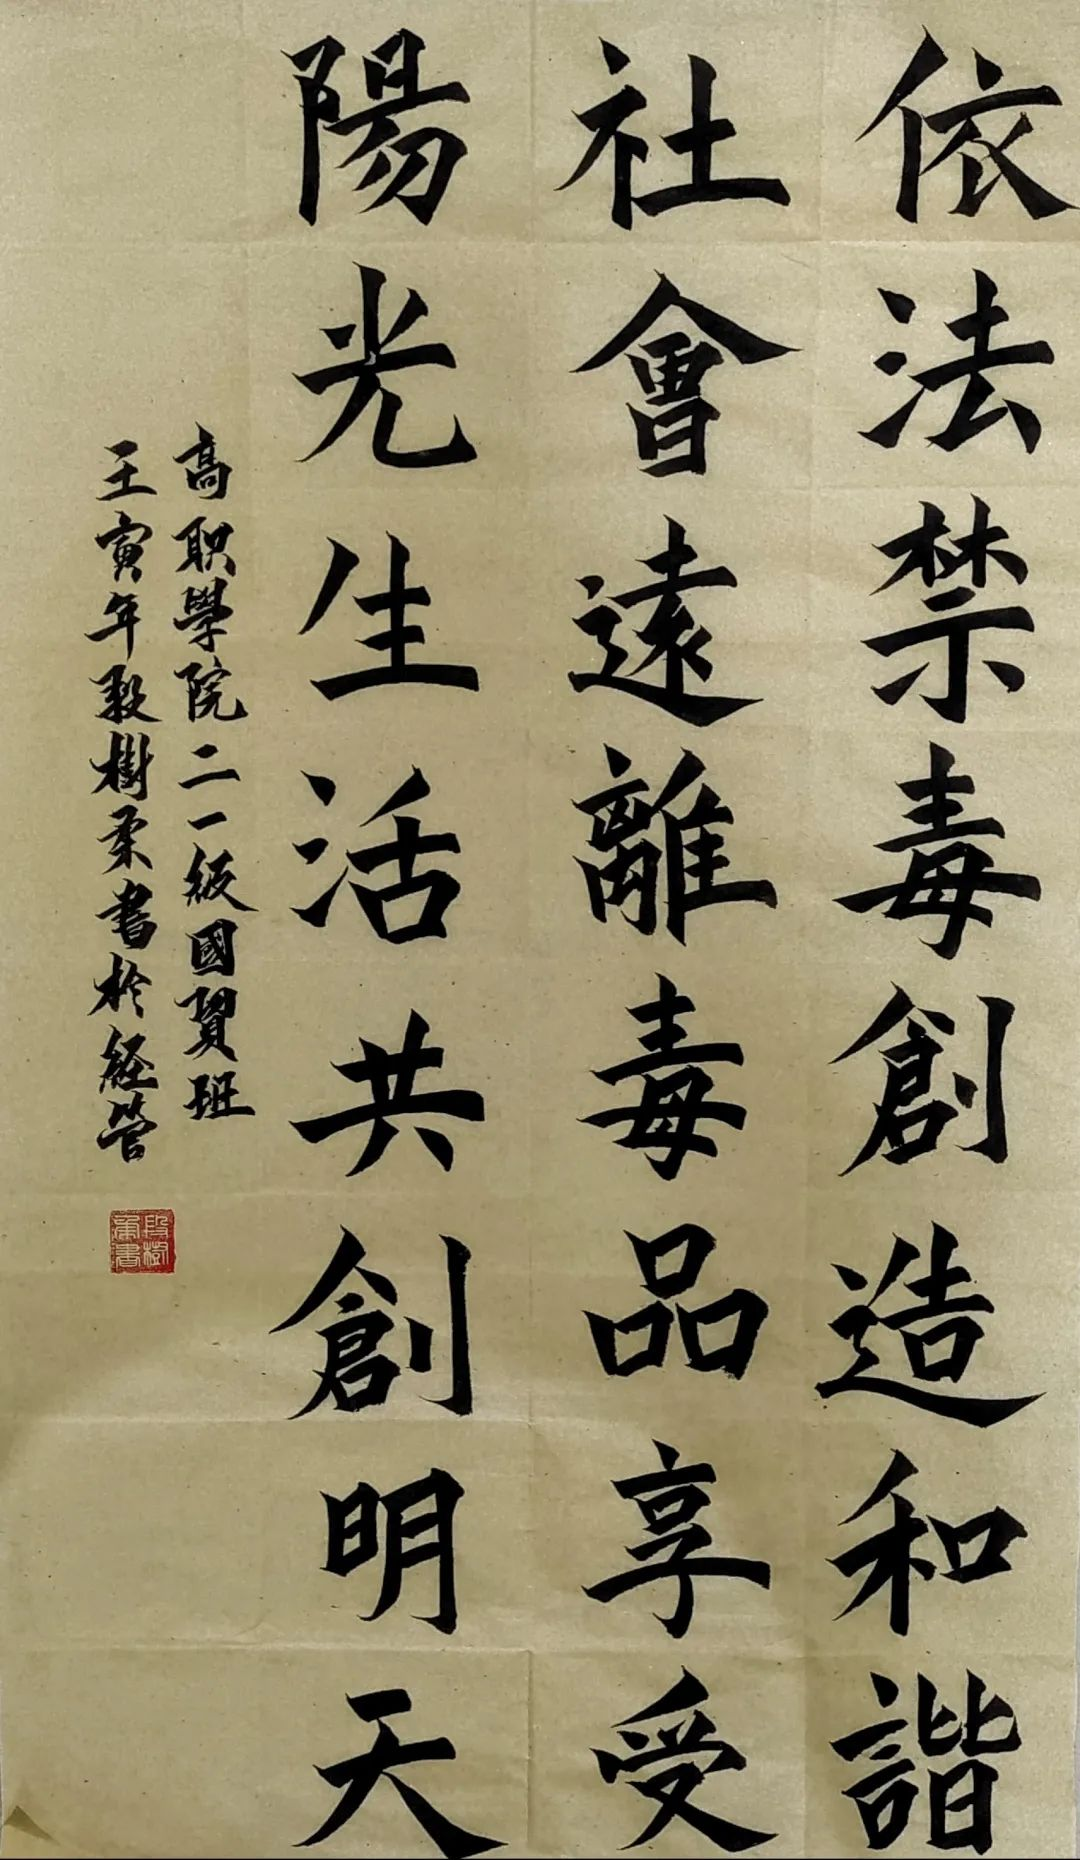 依法禁毒創造和諧
社會遠離毒品享受
陽光生活共創明天
高职學院二一級國貿班
壬寅年段樹柔書於經管